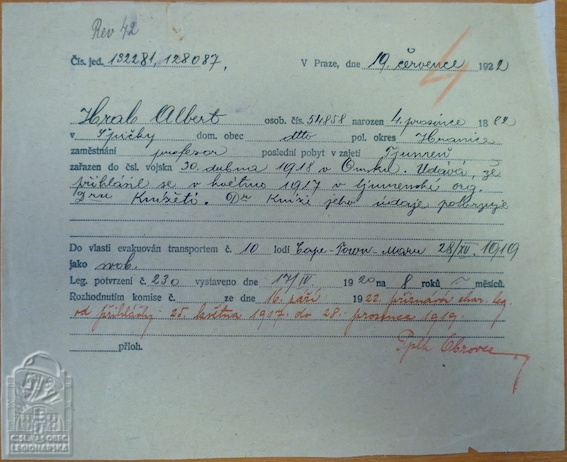 Rev 42
4
Čís. jed. 132281, 128087. V Praze, dne 19. července 1922
Hrab Albert osob. čís. 54858 narozen 4. prosince 1882
v Špičky dom. obec dtto pol. okres Hranice
zaměstnání profesor poslední pobyt v zajetí Tjumeň
zařazen do čsl. vojska 30. dubna 1918 v Omsku. Udává, že
přihlásil se v květnu 1917 v tjumeňské org.
Dr Kníže jeho údaje potvrzuje
Do vlasti evakuován transportem č. 10 lodí Cape-Town-Maru 28/XII. 1919
jako svob.
Leg. potvrzení č. 230 vystaveno dne 17/IV. 1920 na 8 roků – měsíců.
Rozhodnutím komise č. ze dne 16. září 1922 přiznává char. leg.
od přihlášky 25. května 1917 do 28. prosince 1919.
příloh.
ČESKOSLOVENSKÁ OBEC
LEGIONÁŘSKÁ